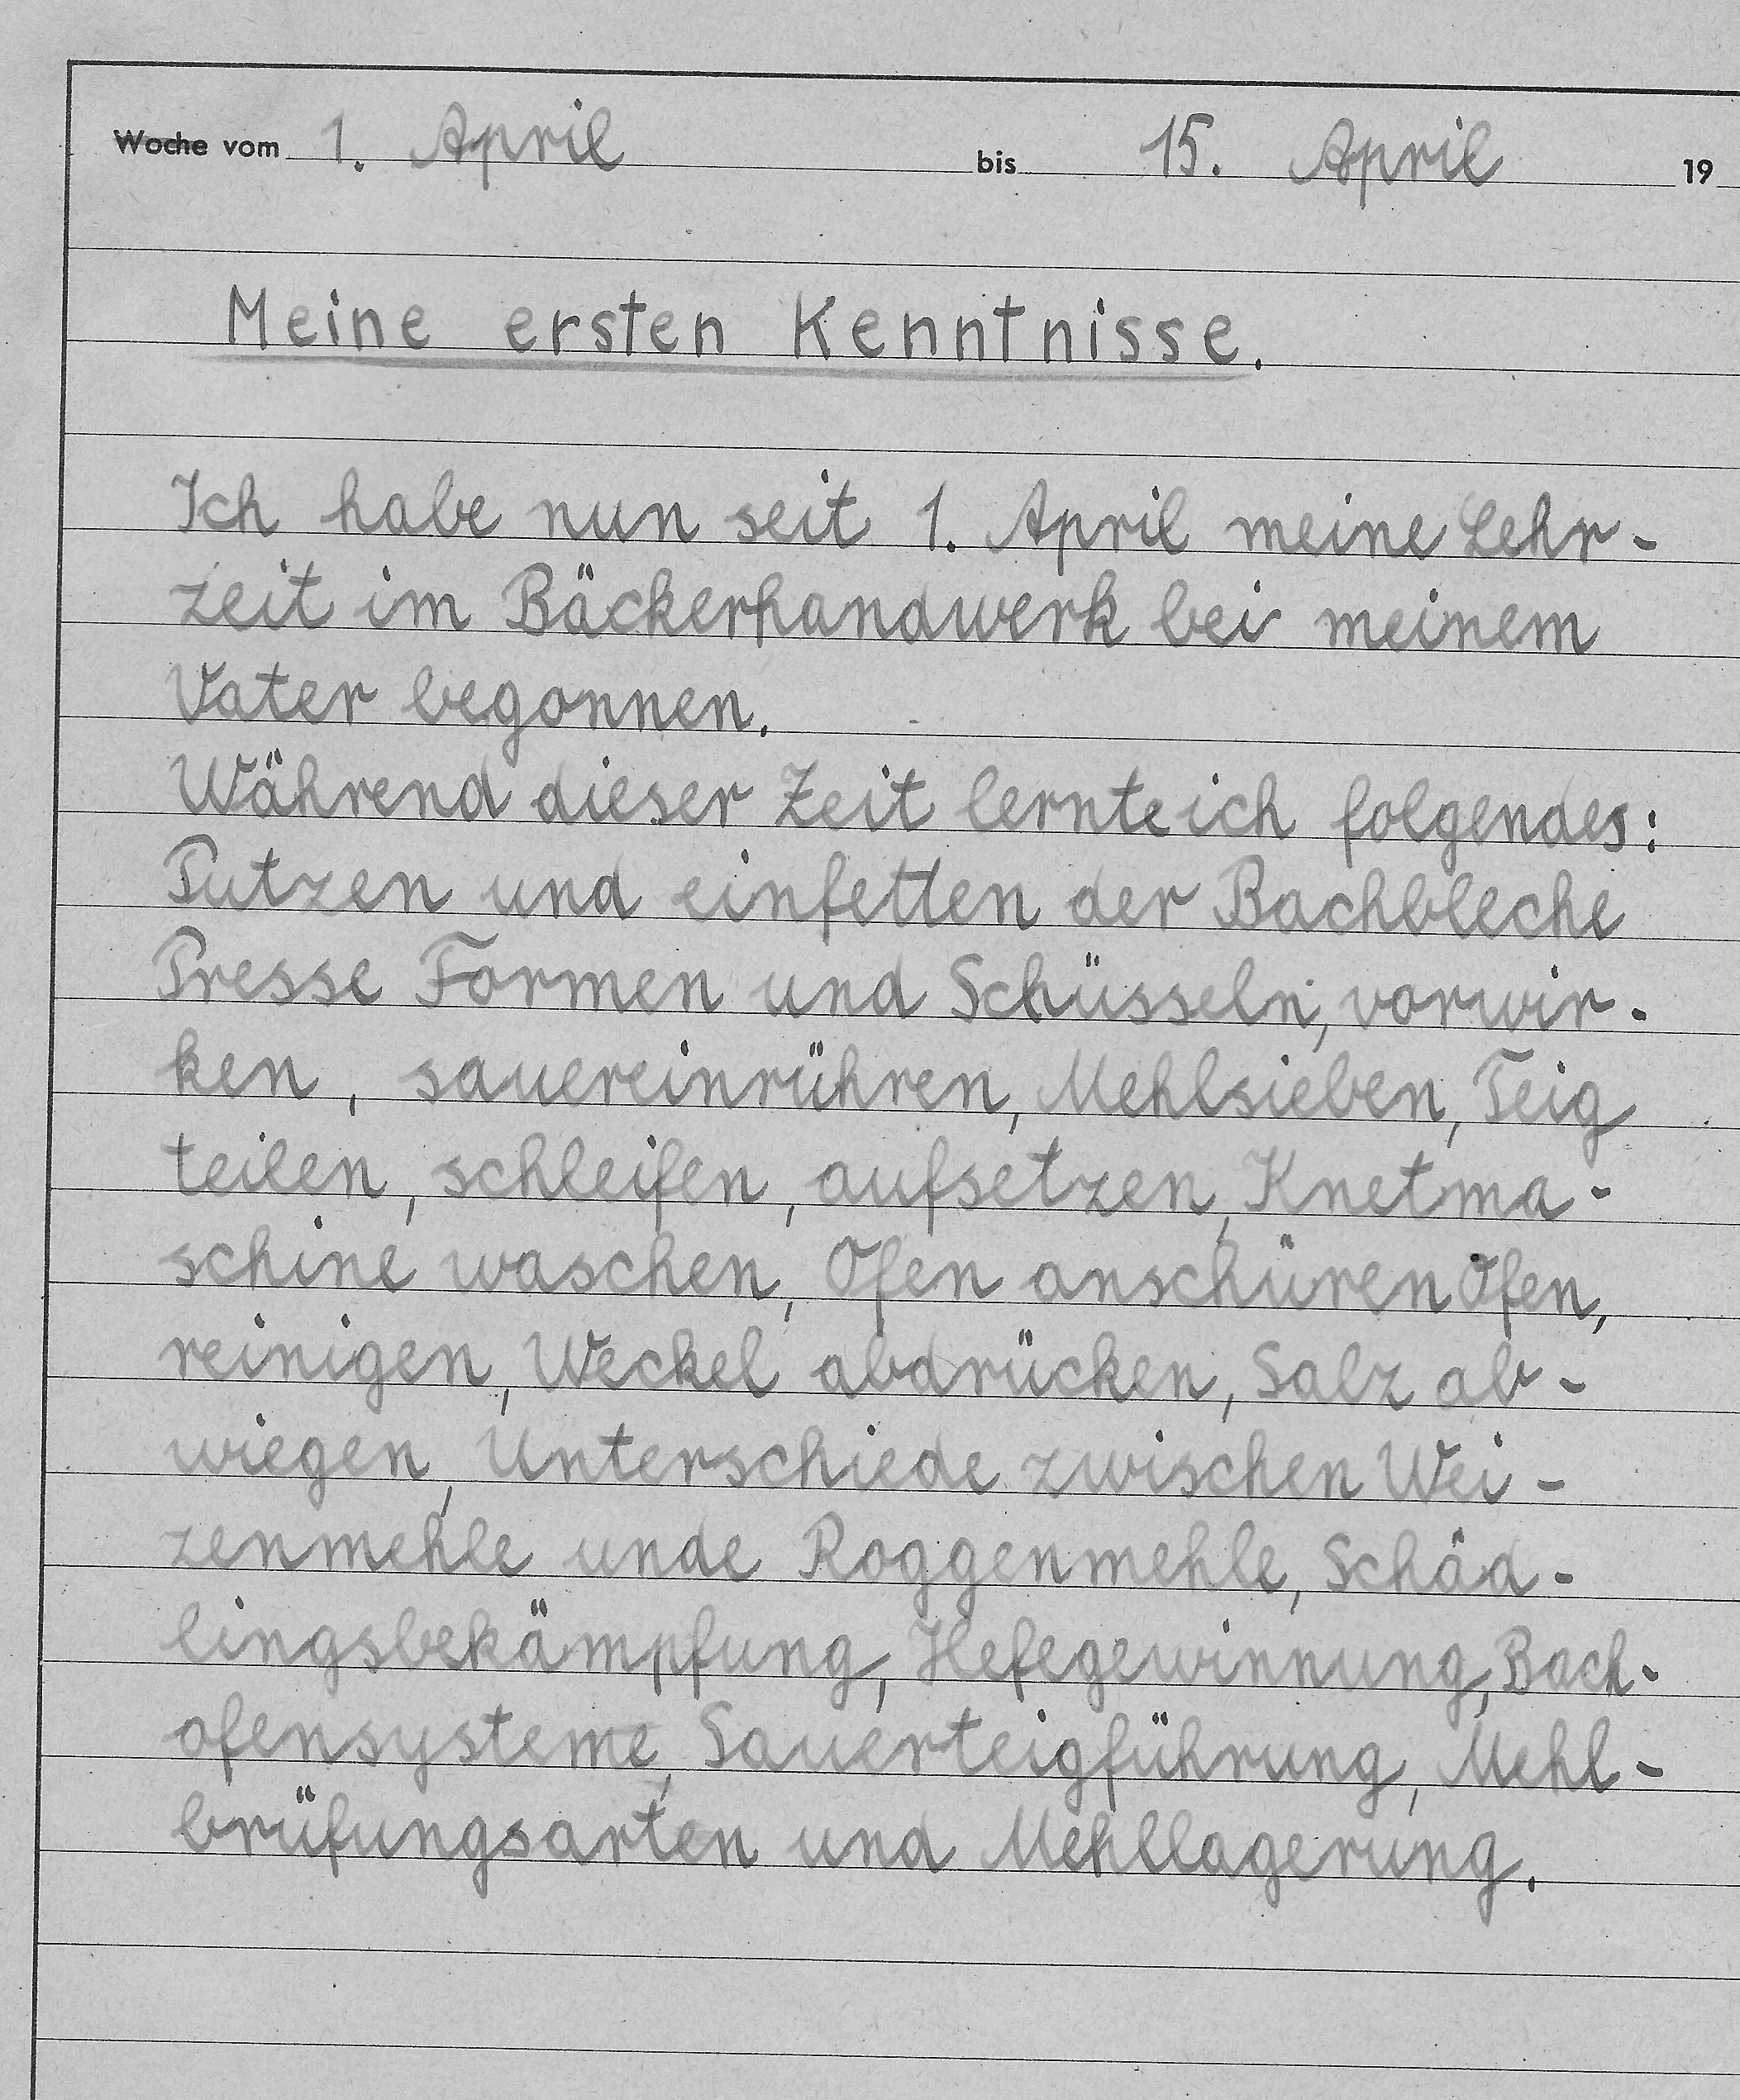 Woche vom 1. April bis 15. April 19
Meine ersten Kenntnisse.
Ich habe nun seit 1. April meine Lehr-
zeit im Bäckerhandwerk bei meinem
Vater begonnen.
Während dieser Zeit lernte ich folgendes:
Putzen und einfetten der Bachbleche
Presse Formen und Schüsseln, vorwir-
ken, sauereinrühren, Mehlsieben, Teig
teilen, schleifen, aufsetzen, Knetma-
schine waschen, Ofen anschüren Ofen,
reinigen, Weckel abdrücken, Salz ab-
wiegen, Unterschiede zwischen Wei-
zenmehle unde Roggenmehle, Schäd-
lingsbekämpfung, Hefegewinnung, Bach-
ofensysteme, Sauerteigführung, Mehl-
brüfungsarten und Mehllagerung.